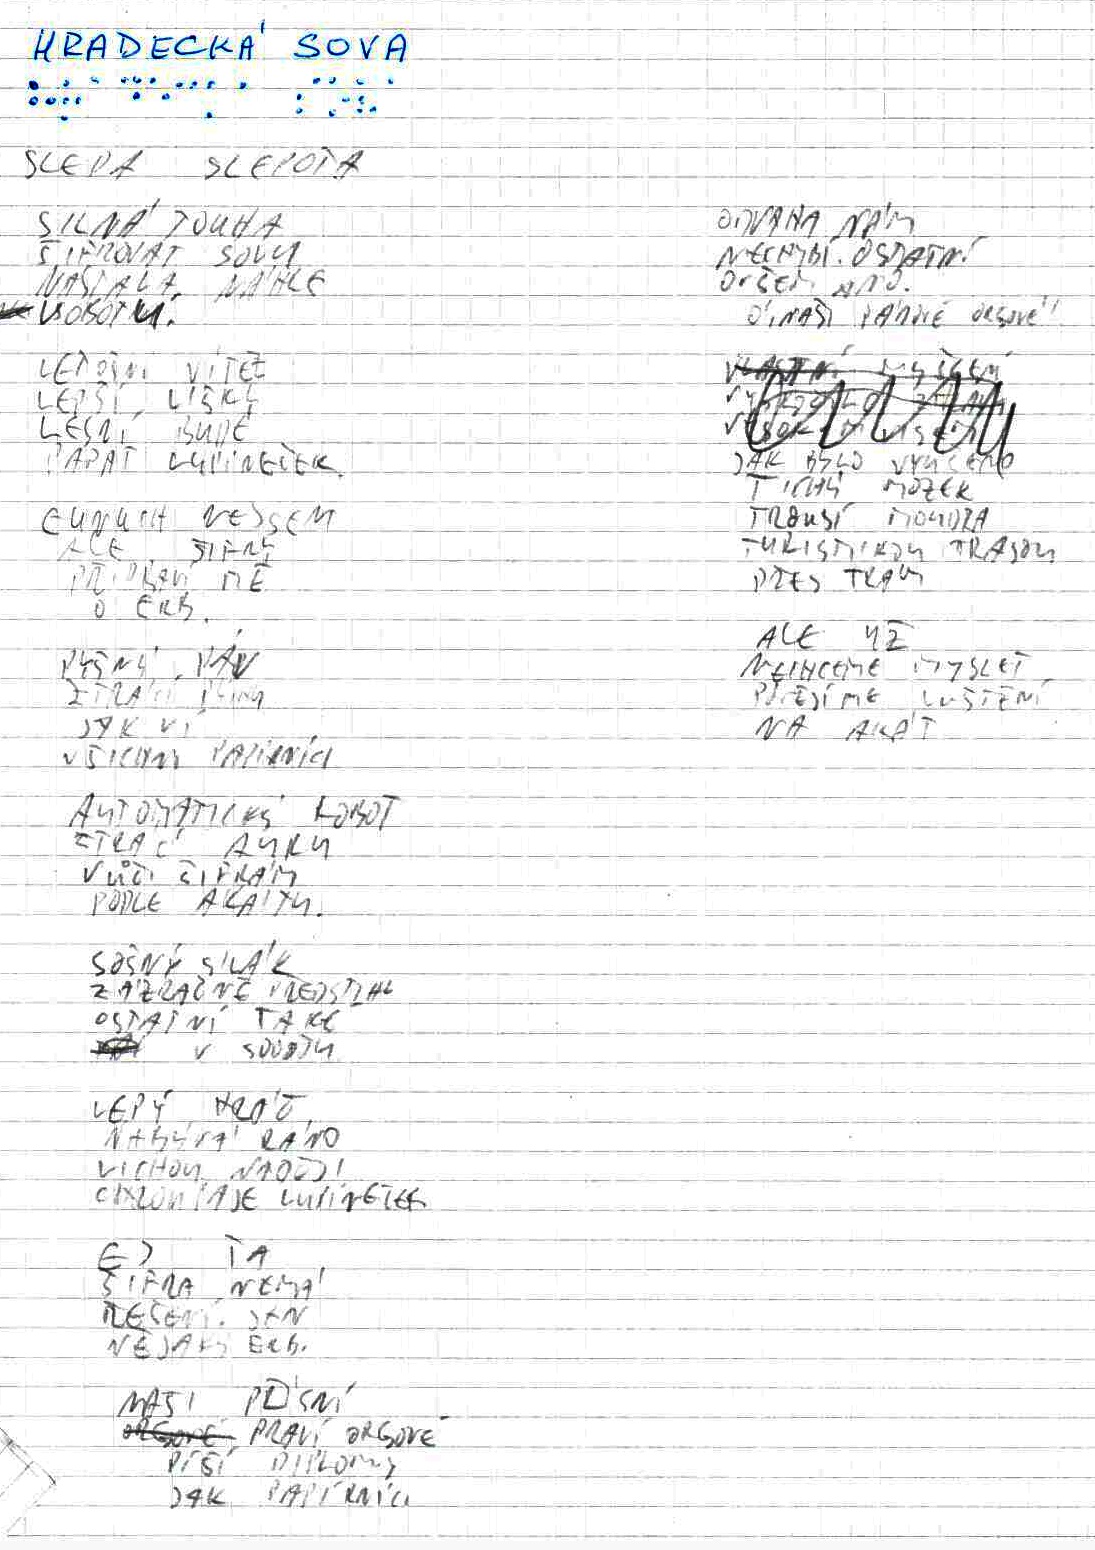 HRADECKÁ SOVA
SLEPÁ SLEPOTA
SILNÁ TOUHA
ŠIFROVAT SOVU
NASTALA NÁHLE
V SOBOTU.
LETOŠNÍ VÍTĚZ
LEPŠÍ LIŠKY
LESNÍ BUDE
PAPAT LUPÍNEČEK.
EUNUCH NEJSEM
ALE ŠIFRY
PŘIPRAVÍ MĚ
O ERB.
PYŠNÝ PÁV
ZTRÁCÍ
JAK VÍ
VŠICHNI PAPÍRNÍCI
AUTOMATICKÝ ROBOT
ZTRÁCÍ AURU
VŮČI ŠIFRÁM
PODLE AKÁTU.
SOŠNÝ SILÁK
ZÁZRAČNĚ PŘEDSTIHL
OSTATNÍ TAKÉ
V SOUBOJU
LEPÝ HRÁČ
NABÝVÁ RÁNO
LICHOU NADĚJI
LUPÍNEČEK
EJ TA
ŠIFRA NEMÁ
ŘEŠENÍ. JEN
NĚJAKÝ ERB.
NAŠI PŘÍSNÍ
PRAVÍ ORGOVÉ
PÍŠÍ DIPLOMY
JAK PAPÍRNÍCI
ODVAHA NÁM
NECHYBÍ. OSTATNÍ
OVŠEM ANO.
Ó, NAŠI ORGOVÉ!
JAK BYLO
TICHÝ MOZEK
TROUSÍ MOUDRA
TURISTICKOU TRASOU
PŘES TRÁVU
ALE UŽ
NECHCEME MYSLET
LUŠTĚNÍ
NA AKÁT